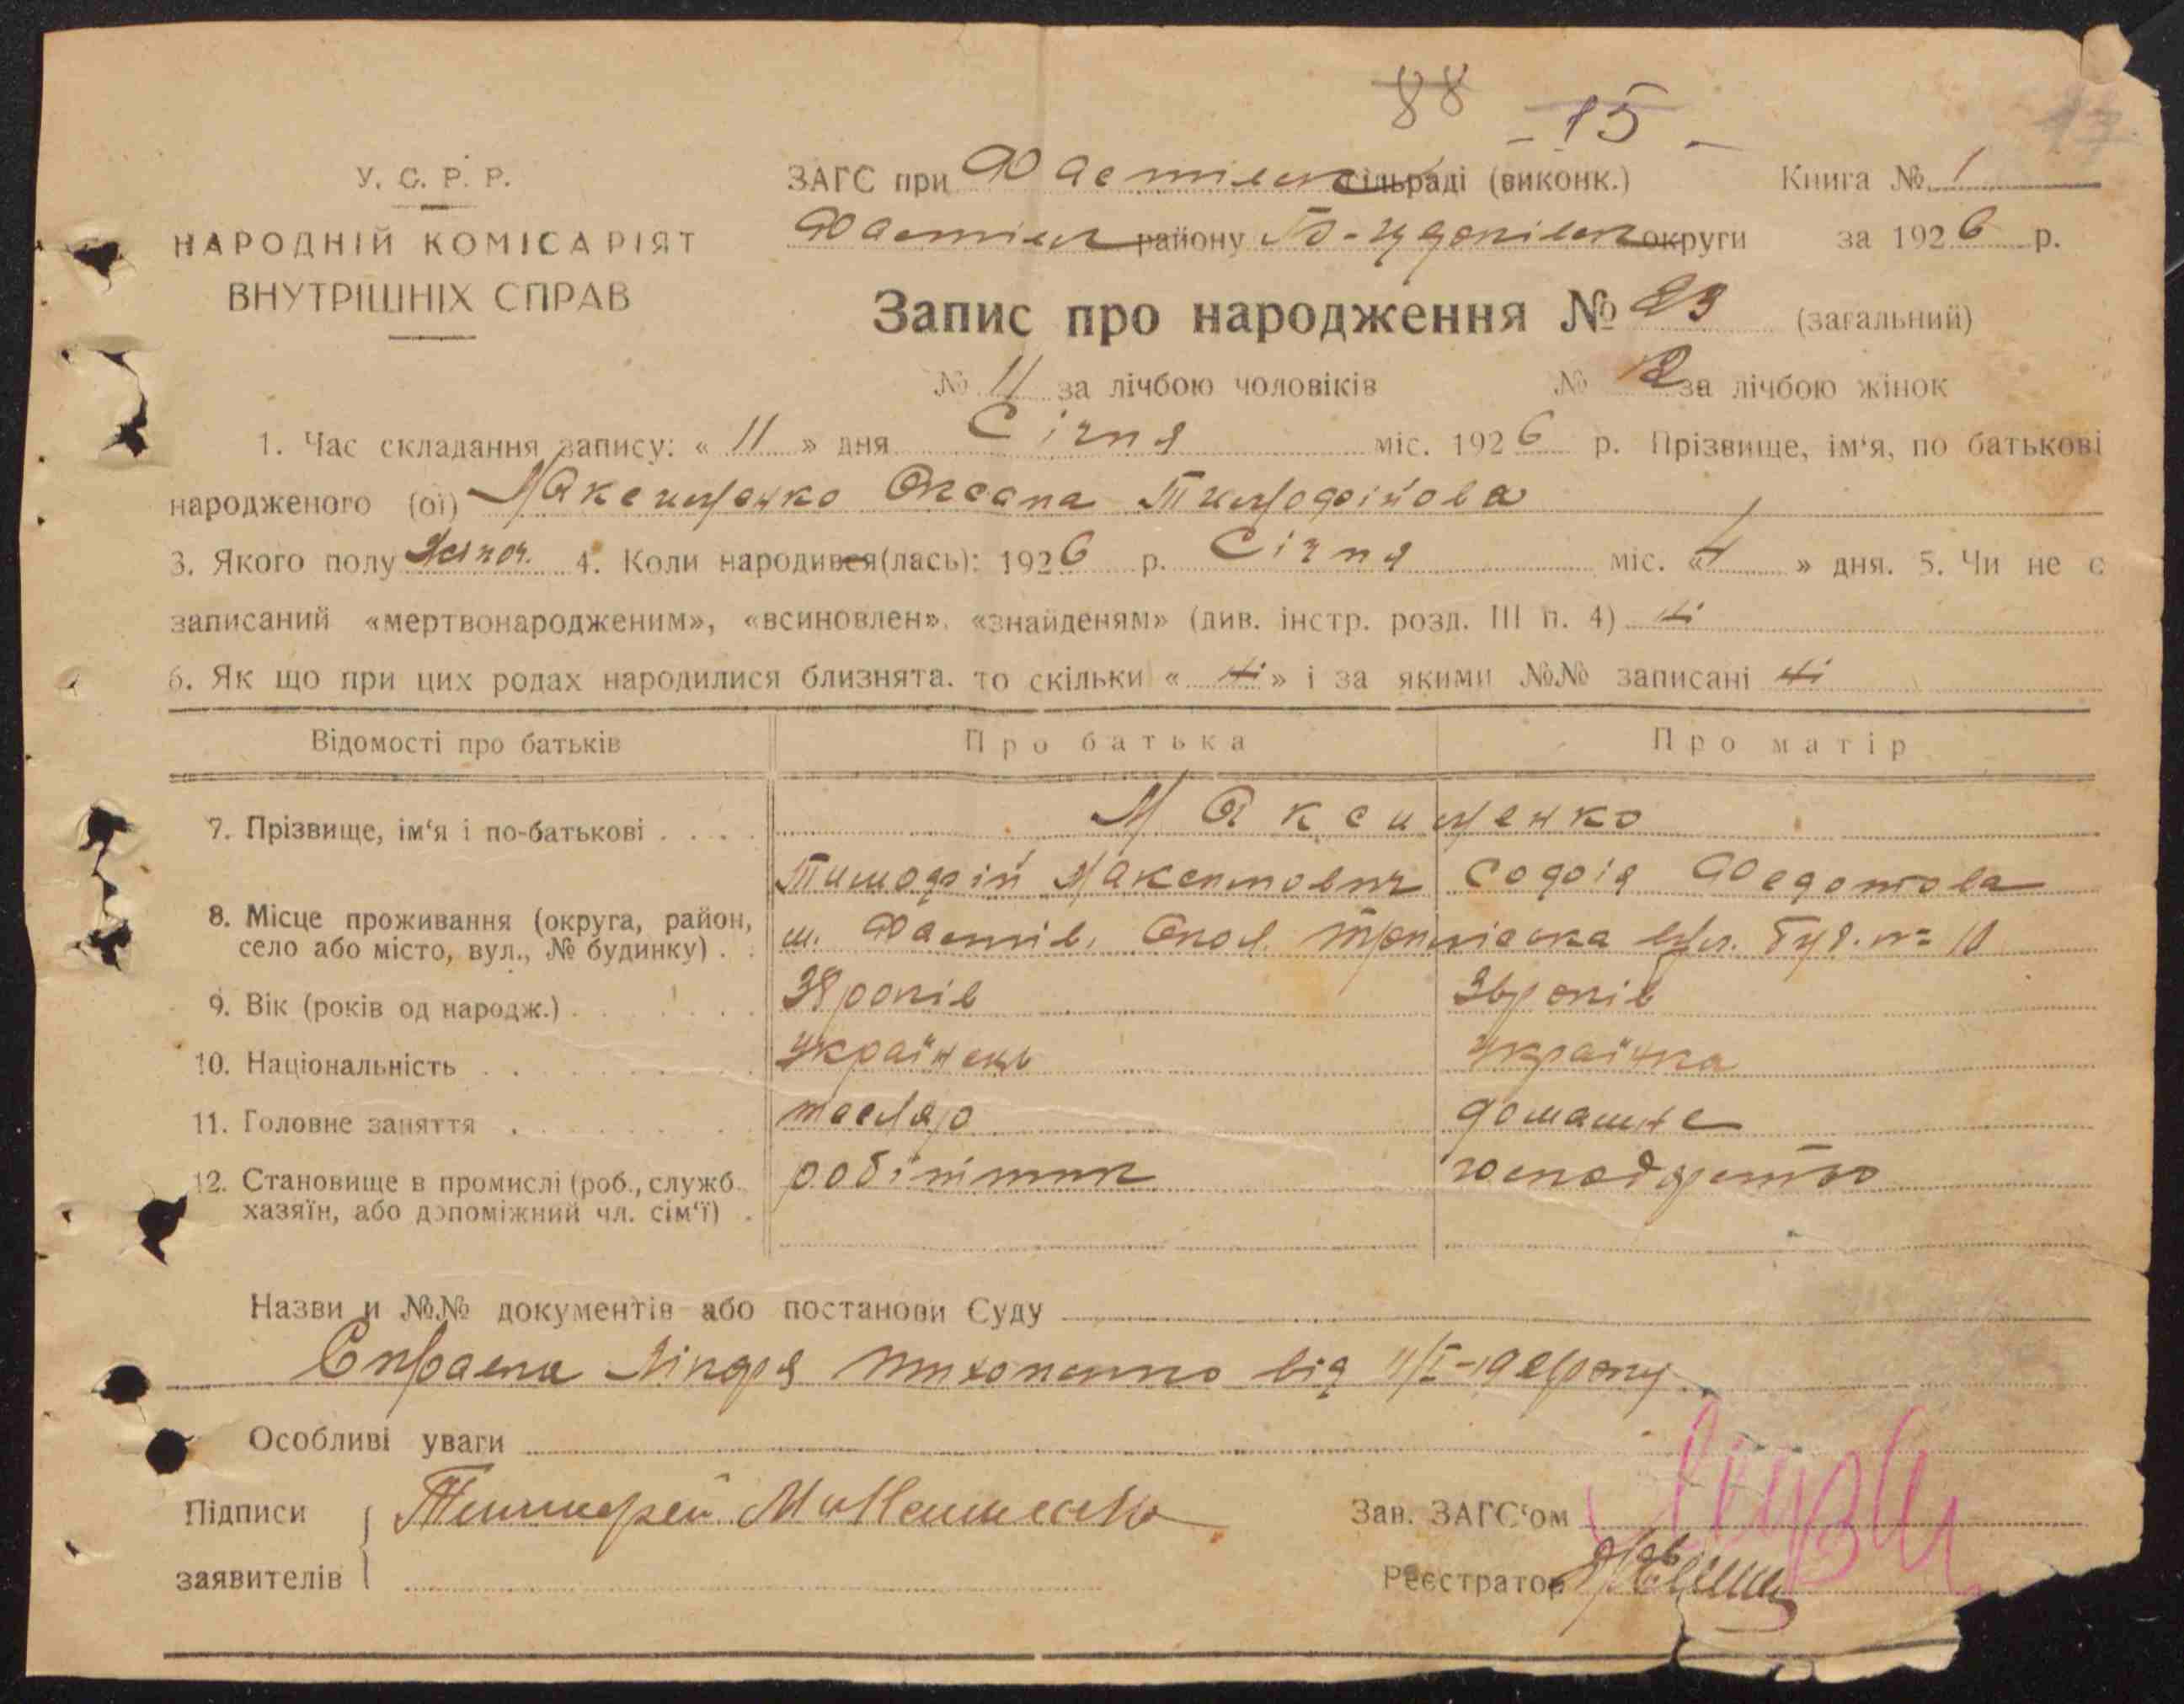 88
- 15 -
17
У. С. Р. Р.
НАРОДНІЙ КОМІСАРІЯТ
ВНУТРІШНІХ СПРАВ
ЗАГС при Фастівск сільраді (виконк.) Книга № 1
Фастівск району Б-Церківск округи за 1926 р.
Запис про народження № 23 (загальний)
№ 11 за лічбою чоловіків № 12 за лічбою жінок
1. Час складання запису: « 11 » дня Січня міс. 1926 р. Прізвище, ім‘я, по батькові
народженого (ої) Максименко Оксана Тимофійова
3. Якого полу Жіноч. 4. Коли народився(лась): 1926 р. Січня міс. « » дня. 5. Чи не є
записаний «мертвонародженим», «всиновлен», «знайденям» (див. інстр. розд. III п. 4) ні
6. Як що при цих родах народилися близнята. то скільки « ні » і за якими №№ записані ні
Відомості про батьків Про батька Про матір
7. Прізвище, ім‘я і по-батькові . . . . Максименко
Тимофій Максимович Софія Федотова
8. Місце проживання (округа, район,
село або місто, вул., № будинку) . . м. Фастів. вул. Буд. № 10
9. Вік (років од народж.) 38 років 36 років
10. Національність українець українка
11. Головне заняття тесляр домашнє
12. Становище в промислі (роб., служб.
хазяїн, або допоміжний чл. сім‘ї) . робітник господарство
Назви и №№ документів або постанови Суду
Справка Лікаря від 11/I-1926 року
Особливі уваги
Підписи
заявителів
Тимофей Максименко
Зав. ЗАГС‘ом
Реєстратор